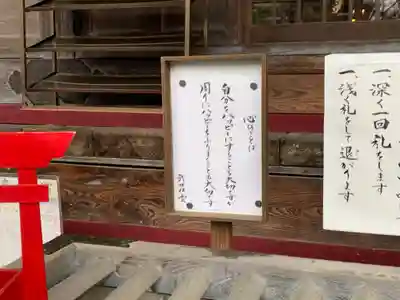 心のことば
自分をハッピーにすることも大切ですが
周りにハッピーをあげることも大切です
一、深く一回礼をします
一、浅く礼をして退がります